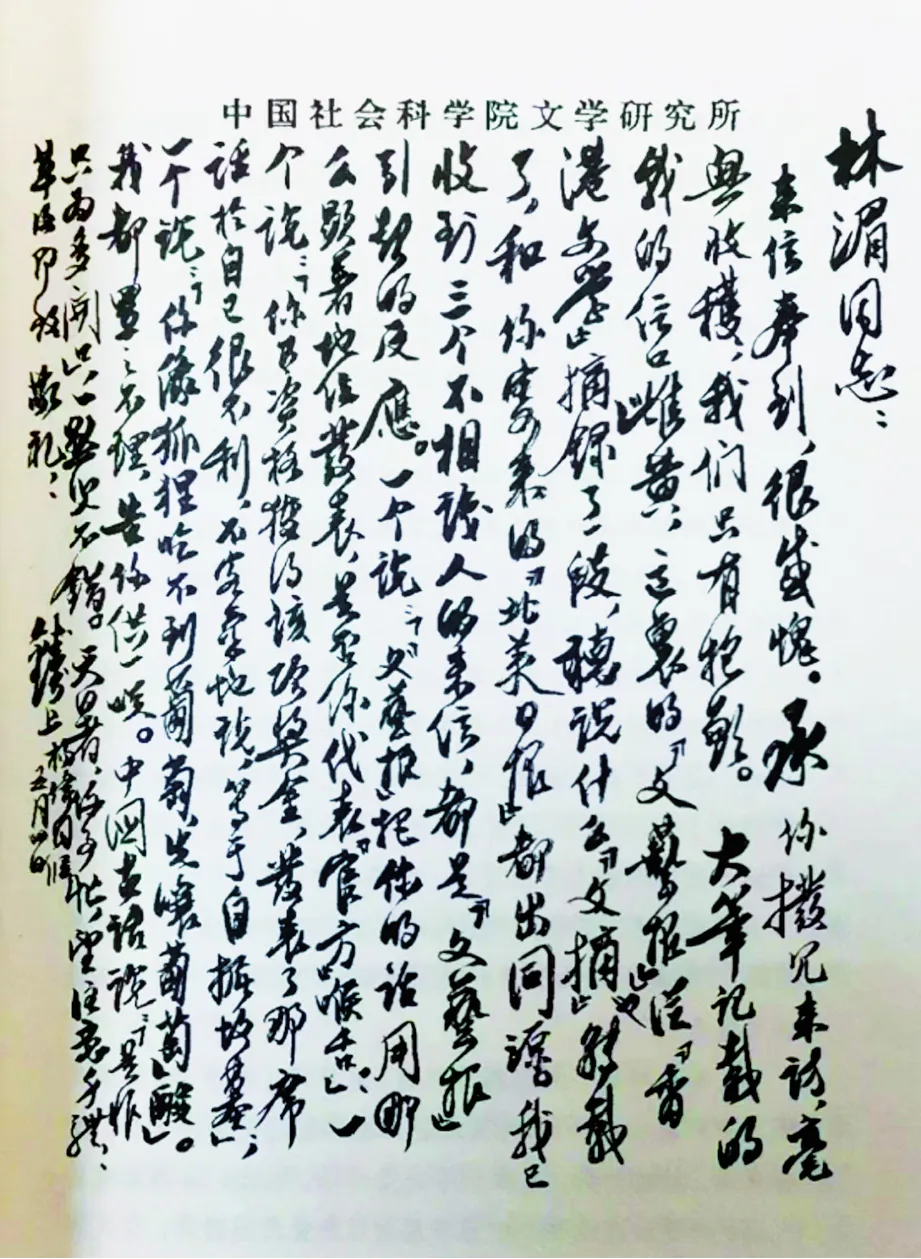 中国社会科学院文学研究所
林湄同志：
来信奉到，很感愧。承你拨冗来访，毫
无收获，我们只有抱歉。大笔记载的
我的信口雌黄，这里的《文艺报》也从《香
港文学》摘录了一段，听说什么《文摘》转载
了，和你寄来的《北美日报》都出同源。我已
收到三个不相识人的来信，都是《文艺报》
引起的反应。一个说：“《文艺报》把你的话用那
么显著地位发表，是否你代表‘官方喉舌’。”一
个说：“你有资格获得该项奖金，发表了那席
话于自己很不利，不客气地说，等于自掘坟墓”；
一个说：“你像狐狸吃不到葡萄，先嚷葡萄酸”。
我都置之不理，告你供一笑。中国古话说：“是非
只为多开口”，一点儿不错。天暑，诸多忙，望注意身体，
草复即致敬礼！
钱锺书上 杨绛同候 五月四日